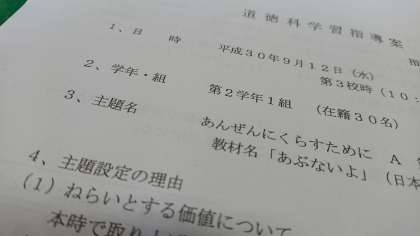 道徳科学習指導案
指
1、日　時　平成３０年９月１２日（水）
第３校時（１０：
2、学年・組　第２学年１組　（在籍３０名）
3、主題名　あんぜんにくらすために　Ａ
教材名「あぶないよ」（日本
4、主題設定の理由
（１）ねらいとする価値について
本時で取り上